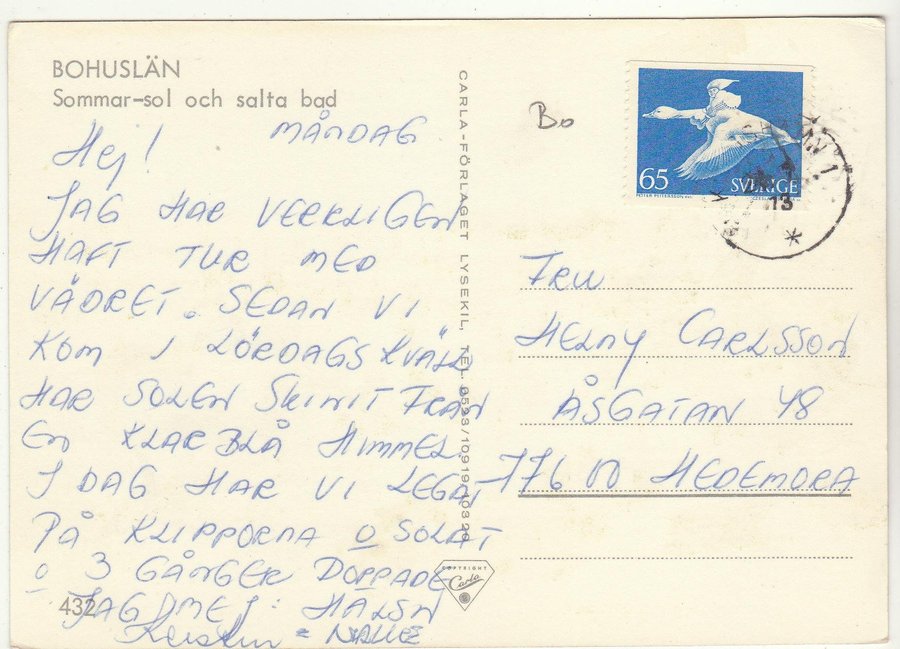 BOHUSLÄN
Sommar-sol och salta bad
MÅNDAG
Hej!
JAG HAR VERKLIGEN
HAFT TUR MED
VÄDRET. SEDAN VI
KOM I LÖRDAGS KVÄLL
HAR SOLEN SKINIT FRÅN
EN KLARBLÅ HIMMEL.
I DAG HAR VI LEGAT
PÅ KLIPPORNA O SOLAT
O 3 GÅNGER DOPPADE
JAG MEJ. HÄLSN
Kerstin = NALLE
432
CARLA-FÖRLAGET LYSEKIL, TEL. 0523/10919, 10320
COPYRIGHT
Carla
Bo
65
SVERIGE
13
FRU
HELNY CARLSSON
ÅSGATAN 48
776 00 HEDEMORA